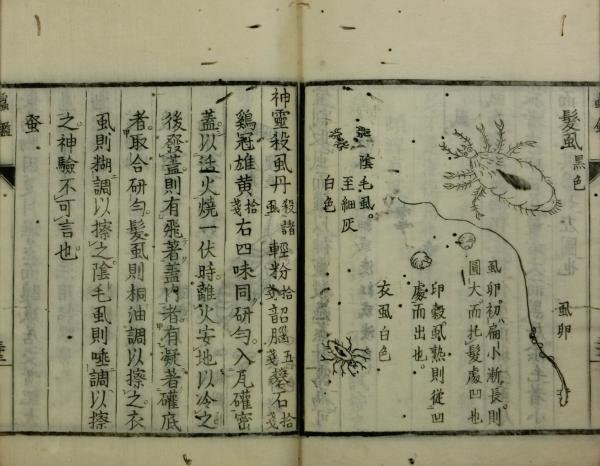 髮虱黑色
虱卵
虱卵初扁小漸長則
圓大而托髮處凹也
卵殼虱熟則從凹
處而出也。
陰毛虱。
至細灰
白色
衣虱白色
神靈殺虱丹殺諸虱輕粉拾戔韶腦五戔礬石拾戔
鷄冠雄黃拾戔右四味同研勻入瓦確密
蓋以活火燒一伏時離火安地以冷之
後發蓋則有飛著蓋內者有凝著確底
者取合研勻髮虱則桐油調以擦之衣
虱則糊調以擦之陰毛虱則唾調以擦
之神驗不可言也
蝨